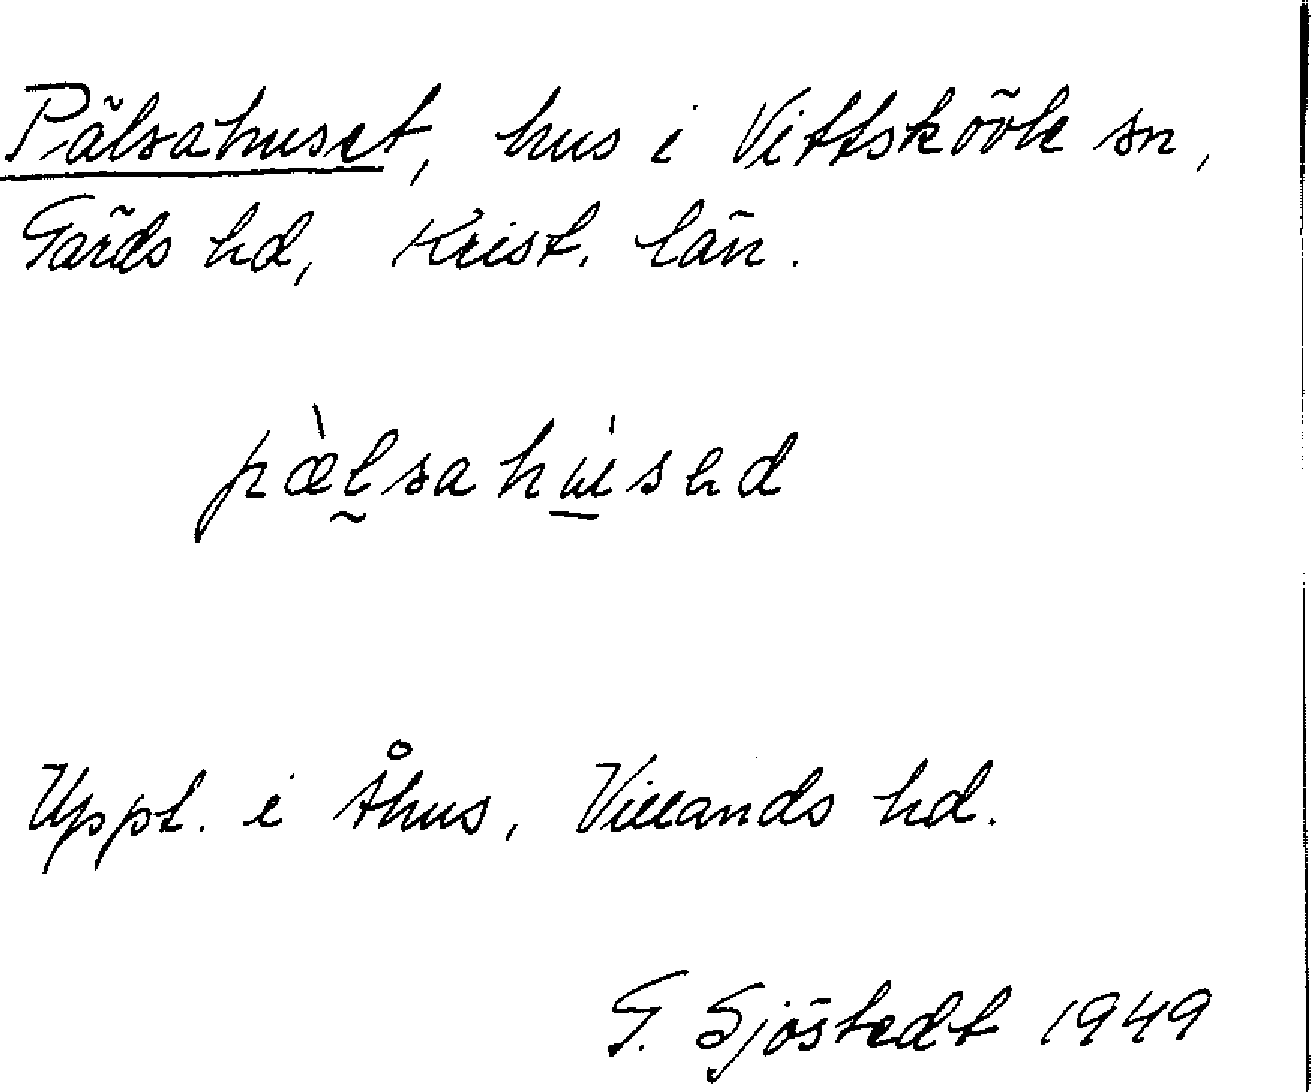 Pälsahuset, hus i Vittskövle sn,
Gärds hd, Krist. län.
pæ̀lsahúsed
Uppt. i Åhus, Villands hd.
G. Sjöstedt 1949